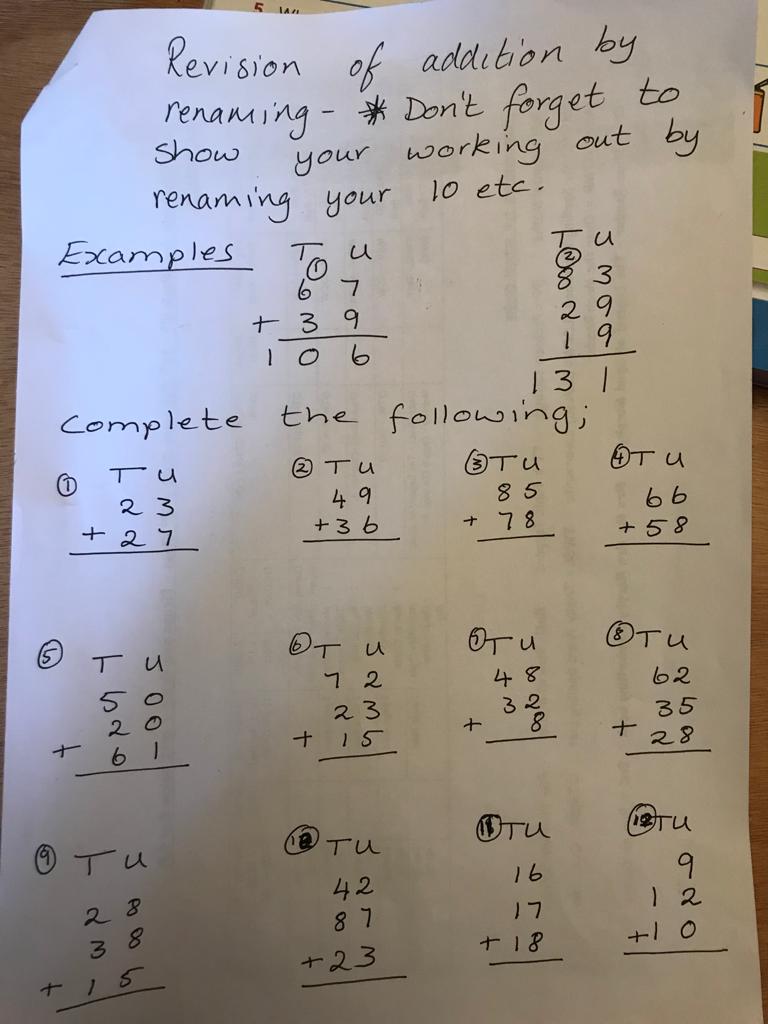 5. W
Revision of addition by
renaming - * Don't forget to
show your working out by
renaming your 10 etc.
Examples
T U
①
6 7
+ 3 9
1 0 6
T U
②
8 3
2 9
1 9
1 3 1
Complete the following;
① T U
2 3
+ 2 7
② T U
4 9
+ 3 6
③ T U
8 5
+ 7 8
④ T U
6 6
+ 5 8
⑤ T U
5 0
2 0
+ 6 1
⑥ T U
7 2
2 3
+ 1 5
⑦ T U
4 8
3 2
+ 8
⑧ T U
6 2
3 5
+ 2 8
⑨ T U
2 8
3 8
+ 1 5
⑩ T U
4 2
8 7
+ 2 3
⑪ T U
1 6
1 7
+ 1 8
⑫ T U
9
1 2
+ 1 0